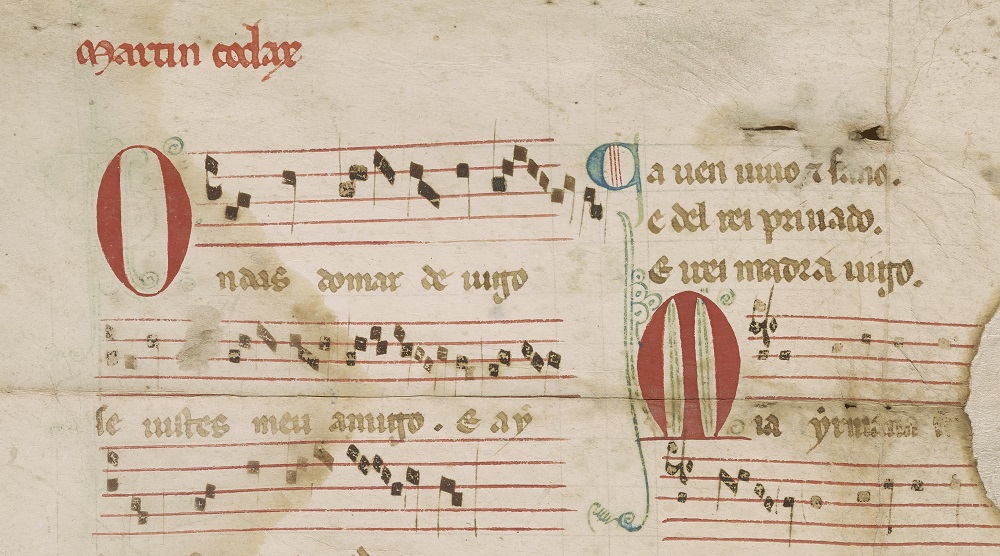 Martin codax
Ondas domar de uigo
se uistes meu amigo. E ay
Ca uen uiuo ⁊ sano.
e del rei priuado.
E irei madr a uigo.
Mia yrmana